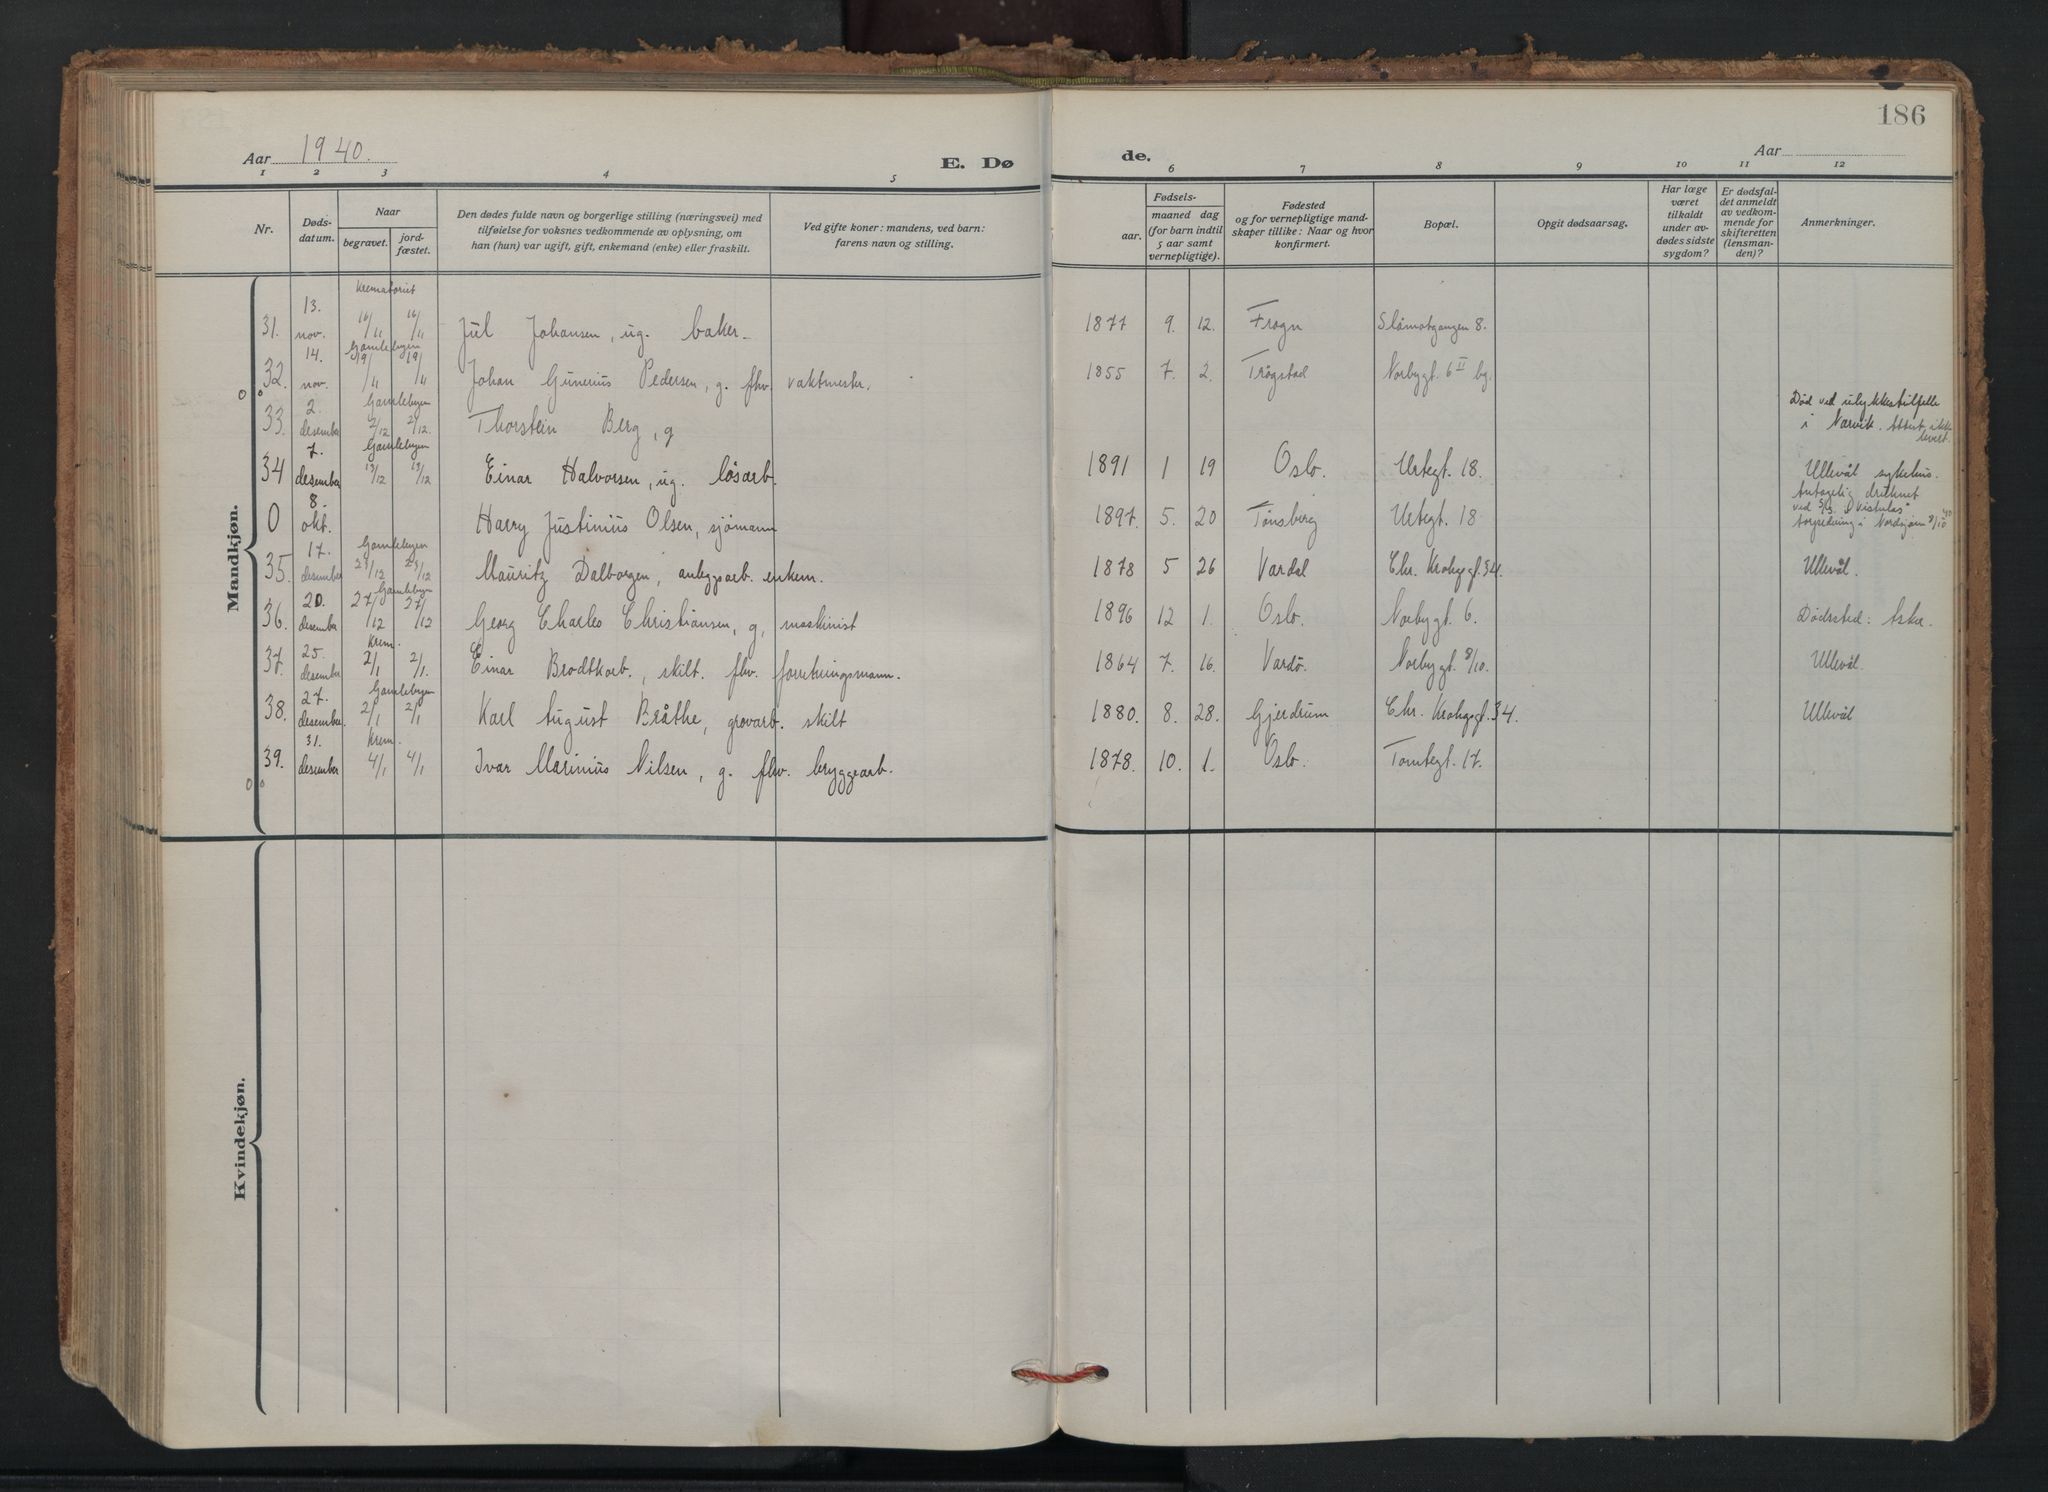 186
Aar 1940.
E. Dø
de.
Aar
1 2 3 4 5 6 7 8 9 10 11 12
Nr.
Døds-
datum.
Naar
begravet.
jord-
fæstet.
Den dødes fulde navn og borgerlige stilling (næringsvei) med
tilføielse for voksnes vedkommende av oplysning, om
han (hun) var ugift, gift, enkemand (enke) eller fraskilt.
Ved gifte koner: mandens, ved barn:
farens navn og stilling.
Fødsels-
aar.
maaned dag
(for barn indtil
5 aar samt
vernepligtige).
Fødested
og for vernepligtige mand-
skaper tillike: Naar og hvor
konfirmert.
Bopæl.
Opgit dødsaarsag.
Har læge
været
tilkaldt
under av-
dødes sidste
sygdom?
Er dødsfal-
det anmeldt
av vedkom-
mende for
skifteretten
(lensman-
den)?
Anmerkninger.
Mandkjøn.
Krematoriet
31. 13. nov. 16/11 16/11 Jul Johansen, ug. baker. 1877 9. 12. Frogn Slåmotgangen 8.
Gamlebyen
32. 14. nov. 19/11 19/11 Johan Gunerius Pedersen, g. fhv. vaktmester. 1855 7. 2. Trøgstad Norbygt. 6 II bg.
Gamlebyen
33. 2. desember 2/12 2/12. Thorstein Berg, g Død ved ulykkestilfelle
i Narvik. Attest ikke
levert.
Gamlebyen
34 7. desember 13/12 13/12 Einar Halvorsen, ug. løsarb. 1891 1 19 Oslo. Urtegt. 18. Ullevål sykehus.
0 8. okt. Harry Justinius Olsen, sjømann 1897. 5. 20 Tønsberg Urtegt. 18 Antagelig druknet
ved D/S "Vistulas"
torpedering i Nordsjøen 8/10 40
Gamlebyen
35. 17. desember 23/12 23/12 Mauritz Dalborgen, anleggsarb. enkem. 1878 5 26 Vardal Chr. Krohgsgt. 34. Ullevål.
Gamlebyen
36. 20. desember 27/12 27/12 Georg Charles Christiansen, g, maskinist 1896 12 1. Oslo. Norbygt. 6. Dødssted: Asker.
Krem.
37. 25. desember 2/1 2/1. Einar Brodtkorb, skilt. fhv. forretningsmann. 1864 7. 16. Vardö. Norbygt. 8/10. Ullevål.
Gamlebyen
38. 27. desember. 2/1 2/1 Karl August Bråthe, grovarb. skilt 1880. 8. 28. Gjerdrum Chr. Krohgsgt. 34. Ullevål
Krem.
39. 31. desember 4/1 4/1 Ivar Marinius Nilsen, g. fhv. bryggearb. 1878. 10. 1. Oslo. Tomtegt. 17.
Kvindekjøn.